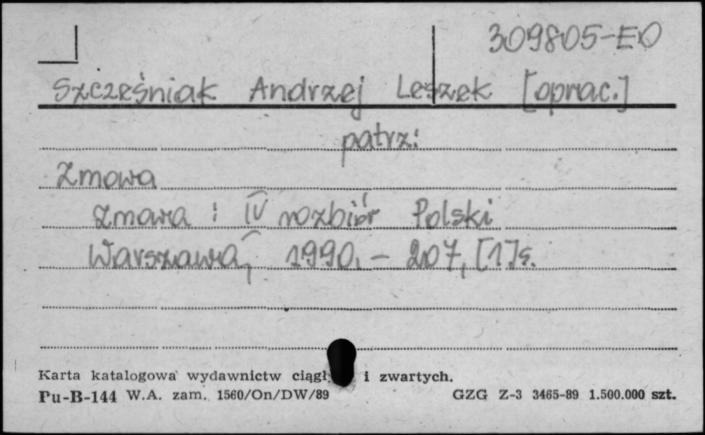 309805-ED
Szcześniak Andrzej Leszek [oprac.]
patrz:
Zmowa
Zmowa : IV rozbiór Polski
Warszawa, 1990. - 207, [1] s.
Karta katalogowa wydawnictw ciągł i zwartych.
Pu-B-144 W.A. zam. 1560/On/DW/89 GZG Z-3 3465-89 1.500.000 szt.